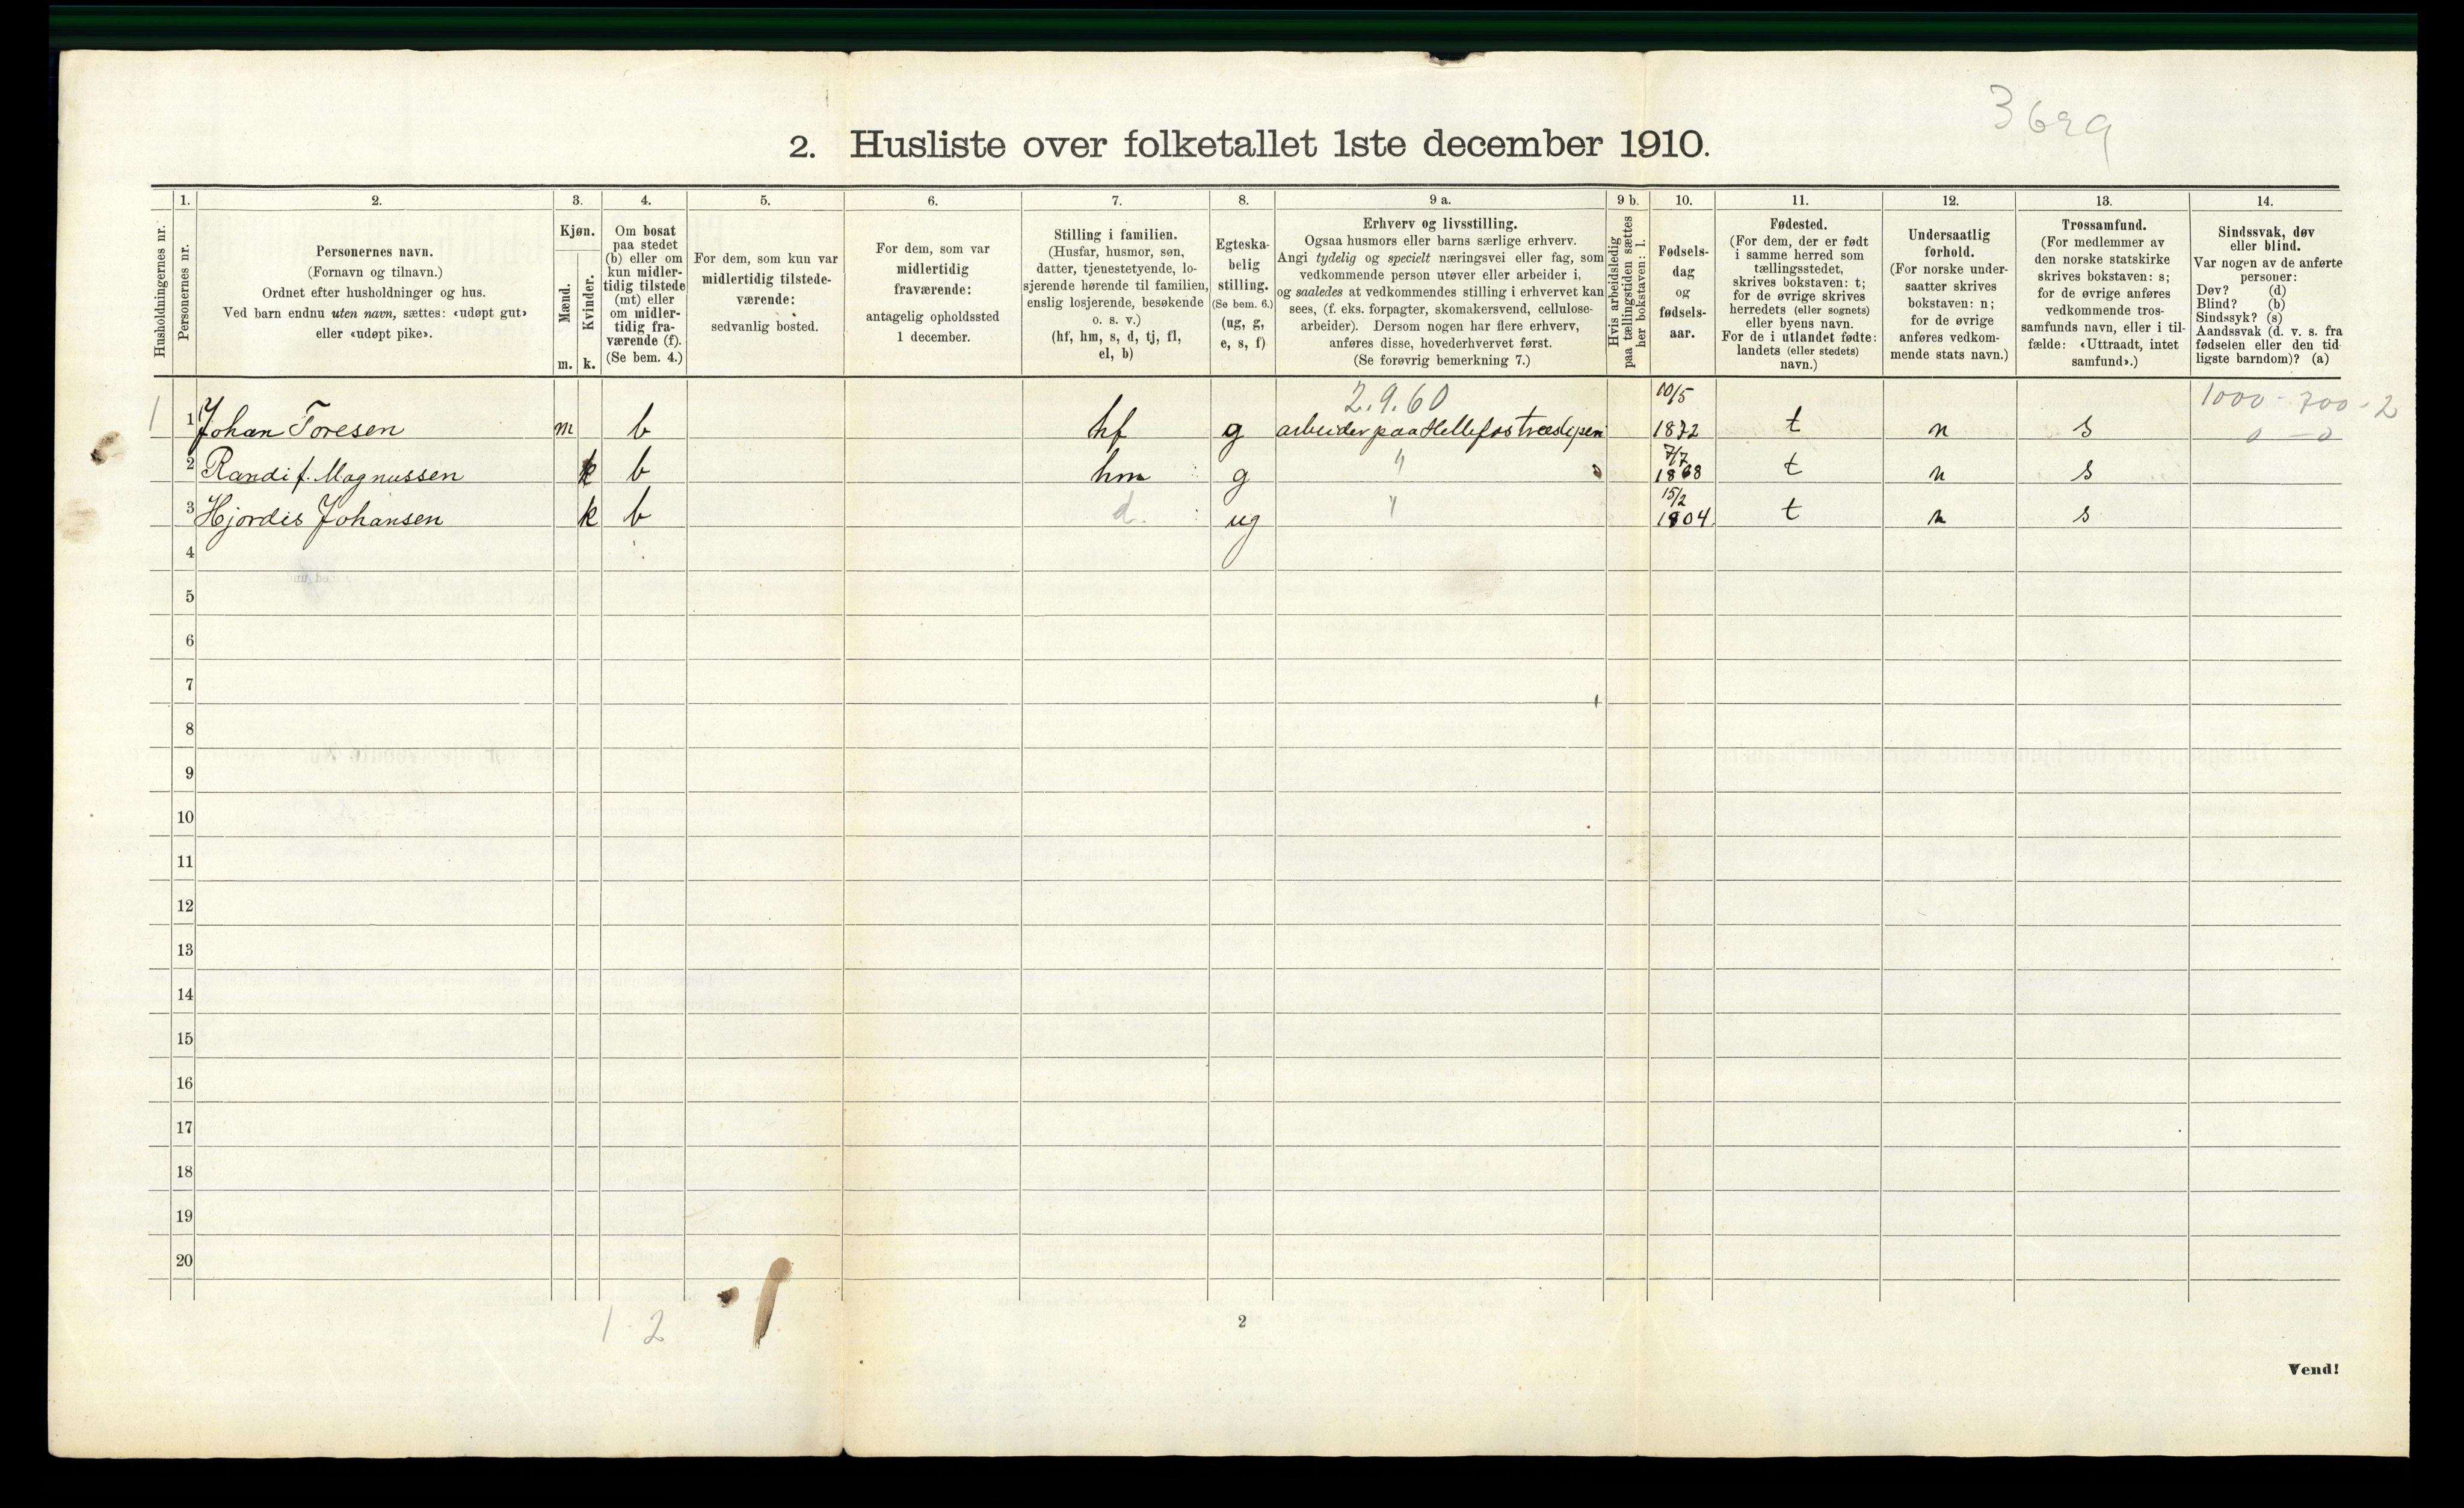 3629
2. Husliste over folketallet 1ste december 1910.
Husholdningernes nr.
1.
Personernes nr.
2.
Personernes navn.
(Fornavn og tilnavn.)
Ordnet efter husholdninger og hus.
Ved barn endnu uten navn, sættes: «udøpt gut»
eller «udøpt pike».
3.
Kjøn.
Mænd.
Kvinder.
m. k.
4.
Om bosat
paa stedet
(b) eller om
kun midler-
tidig tilstede
(mt) eller
om midler-
tidig fra-
værende (f).
(Se bem. 4.)
5.
For dem, som kun var
midlertidig tilstede-
værende:
sedvanlig bosted.
6.
For dem, som var
midlertidig
fraværende:
antagelig opholdssted
1 december.
7.
Stilling i familien.
(Husfar, husmor, søn,
datter, tjenestetyende, lo-
sjerende hørende til familien,
enslig losjerende, besøkende
o. s. v.)
(hf, hm, s, d, tj, fl,
el, b)
8.
Egteska-
belig
stilling.
(Se bem. 6.)
(ug, g,
e, s, f)
9 a.
Erhverv og livsstilling.
Ogsaa husmors eller barns særlige erhverv.
Angi tydelig og specielt næringsvei eller fag, som
vedkommende person utøver eller arbeider i,
og saaledes at vedkommendes stilling i erhvervet kan
sees, (f. eks. forpagter, skomakersvend, cellulose-
arbeider). Dersom nogen har flere erhverv,
anføres disse, hovederhvervet først.
(Se forøvrig bemerkning 7.)
9 b.
Hvis arbeidsledig
paa tællingstiden sættes
her bokstaven: l.
10.
Fødsels-
dag
og
fødsels-
aar.
11.
Fødested.
(For dem, der er født
i samme herred som
tællingsstedet,
skrives bokstaven: t;
for de øvrige skrives
herredets (eller sognets)
eller byens navn.
For de i utlandet fødte:
landets (eller stedets)
navn.)
12.
Undersaatlig
forhold.
(For norske under-
saatter skrives
bokstaven: n;
for de øvrige
anføres vedkom-
mende stats navn.)
13.
Trossamfund.
(For medlemmer av
den norske statskirke
skrives bokstaven: s;
for de øvrige anføres
vedkommende tros-
samfunds navn, eller i til-
fælde: «Uttraadt, intet
samfund».)
14.
Sindssvak, døv
eller blind.
Var nogen av de anførte
personer:
Døv? (d)
Blind? (b)
Sindssyk? (s)
Aandssvak (d. v. s. fra
fødselen eller den tid-
ligste barndom)? (a)
2.9.60 10/5 1000 - 700 - 2
1 1 Johan Toresen m b hf g arbeider paa Hellefos træsliperi 1872 t n s 0 - 0
7/7
2 Randi f. Magnussen k b hm g " 1868 t n s
15/2
3 Hjordis Johansen k b d. ug " 1904 t n s
4
5
6
7
8
9
10
11
12
13
14
15
16
17
18
19
20
1-2
2
Vend!